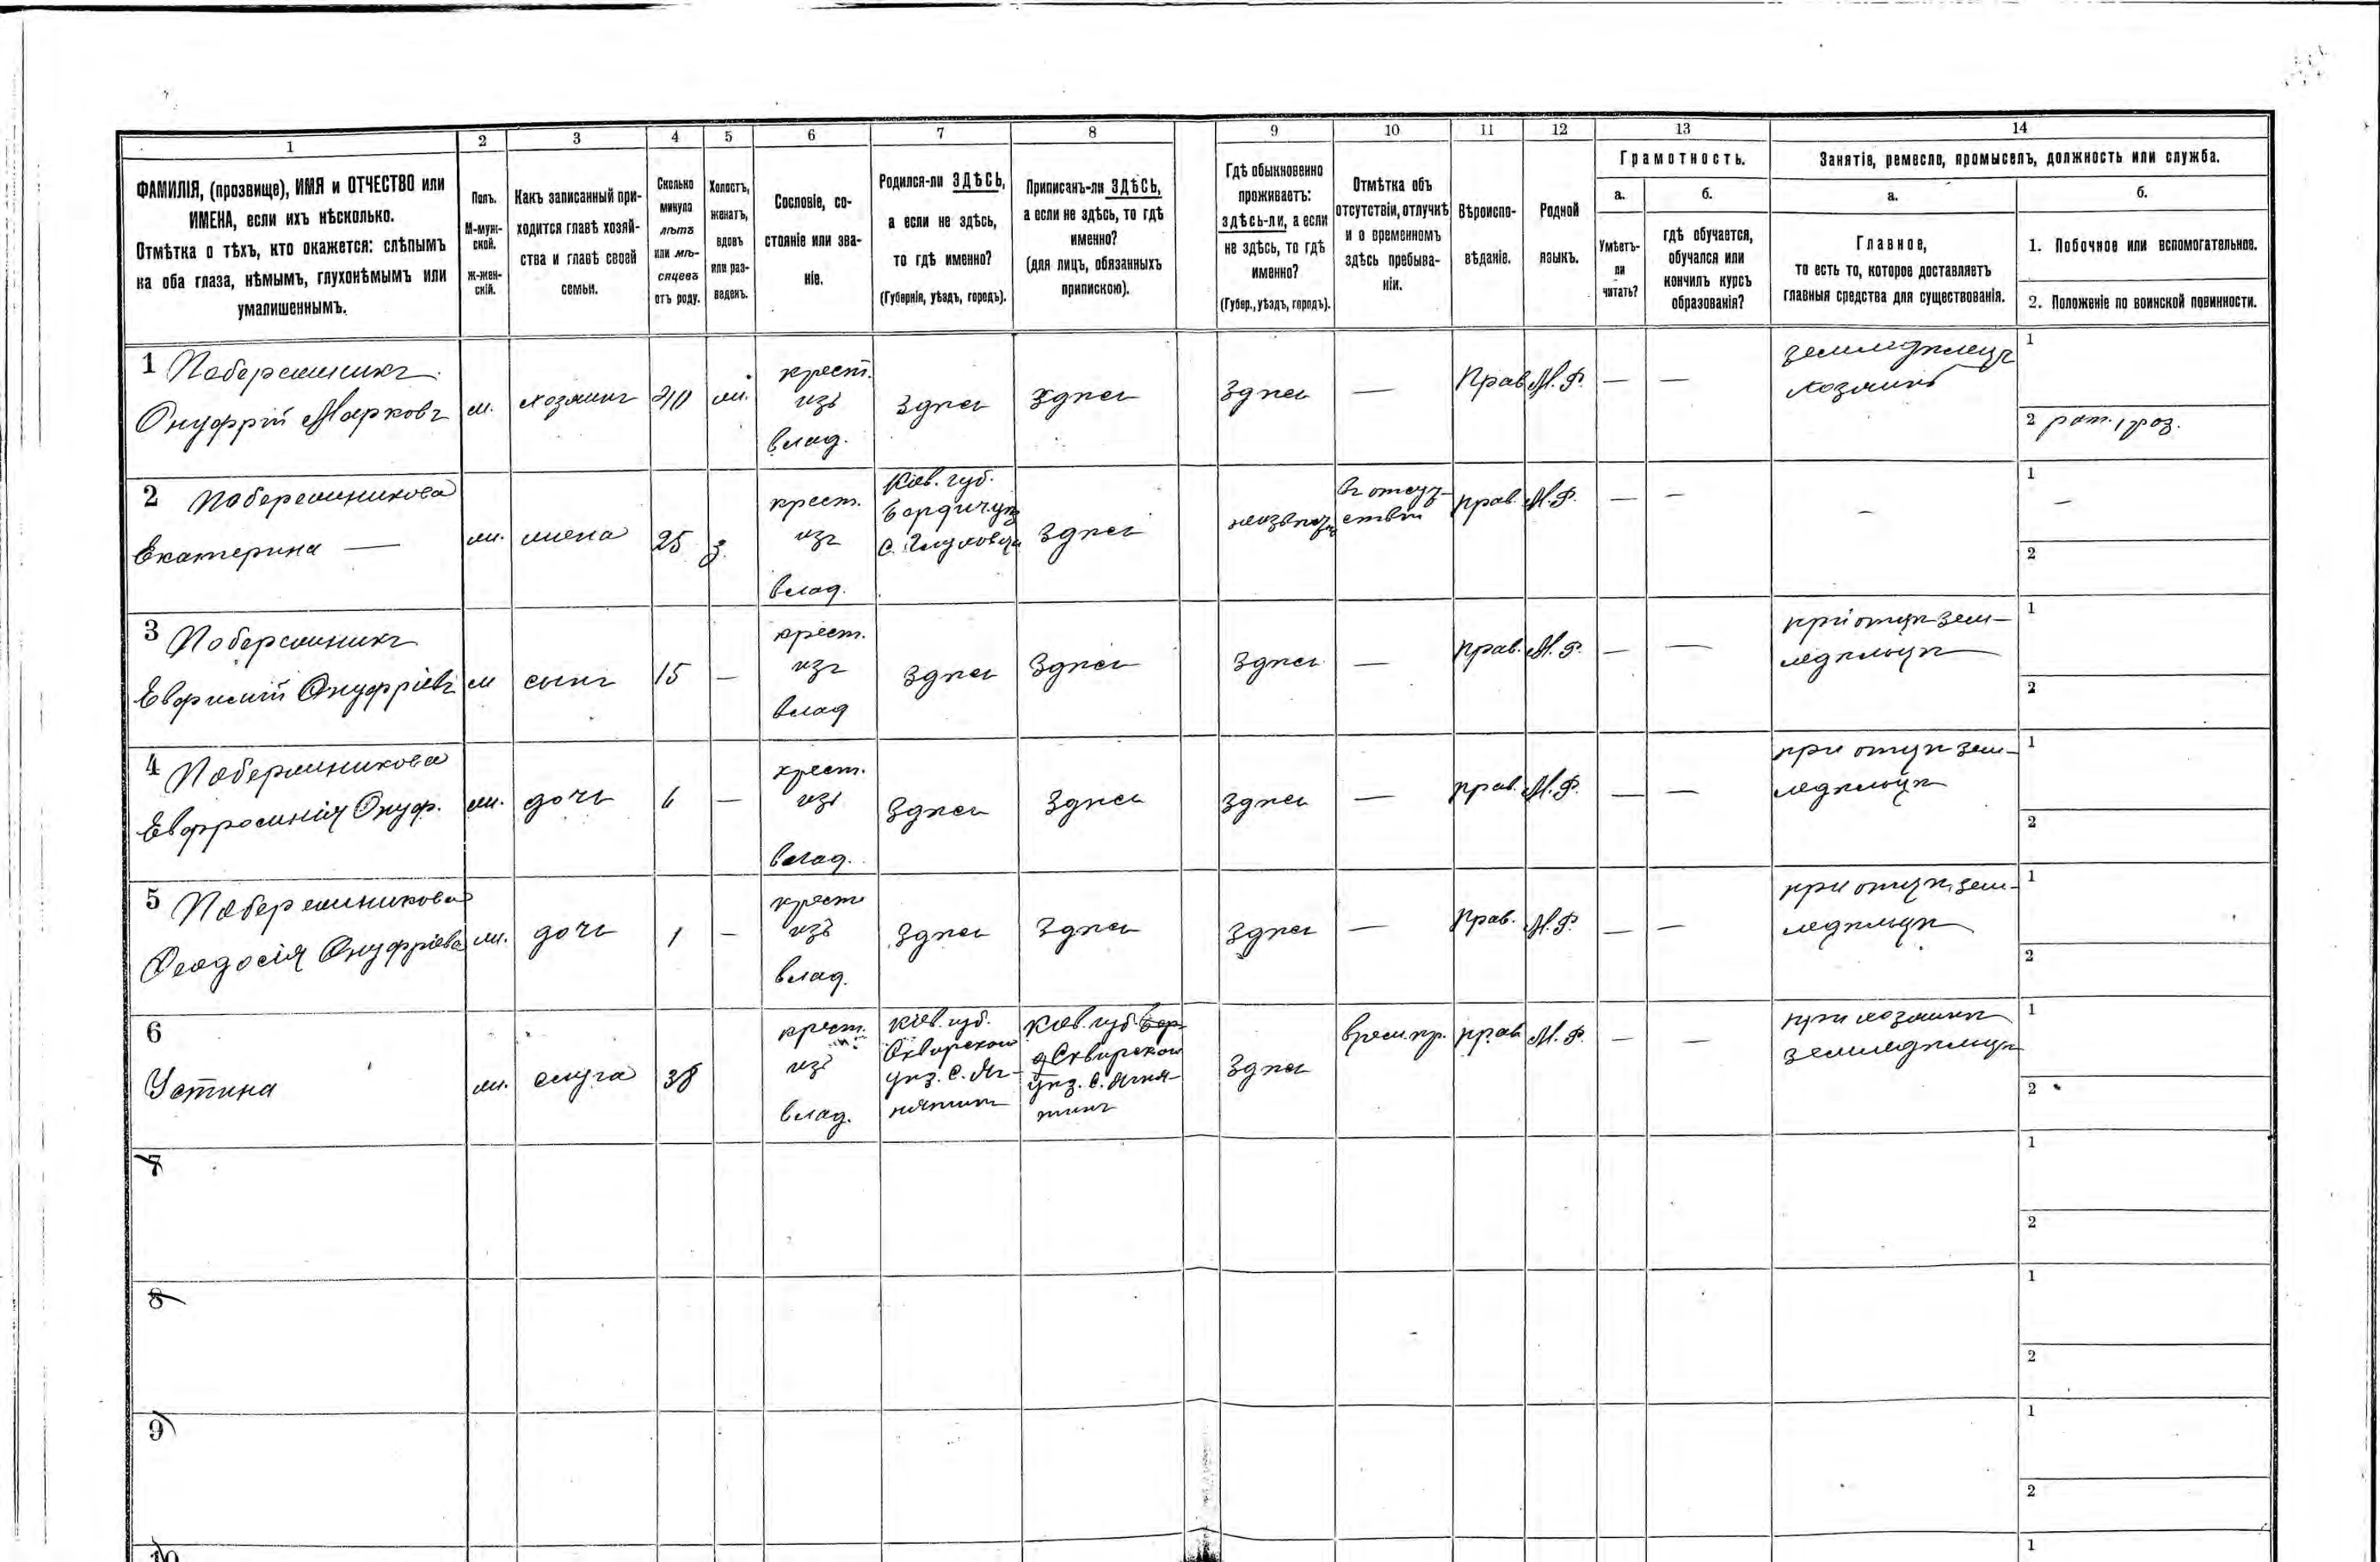 1 2 3 4 5 6 7 8 9 10 11 12 13 14
ФАМИЛІЯ, (прозвище), ИМЯ и ОТЧЕСТВО или
ИМЕНА, если ихъ нѣсколько.
Отмѣтка о тѣхъ, кто окажется: слѣпымъ
на оба глаза, нѣмымъ, глухонѣмымъ или
умалишеннымъ.
Полъ.
М-муж-
ской.
ж-жен-
скій.
Какъ записанный при-
ходится главѣ хозяй-
ства и главѣ своей
семьи.
Сколько
минуло
лѣтъ
или мѣ-
сяцевъ
отъ роду.
Холостъ,
женатъ,
вдовъ
или раз-
веденъ.
Сословіе, со-
стояніе или зва-
ніе.
Родился-ли ЗДѢСЬ,
а если не здѣсь,
то гдѣ именно?
(Губернія, уѣздъ, городъ).
Приписанъ-ли ЗДѢСЬ,
а если не здѣсь, то гдѣ
именно?
(для лицъ, обязанныхъ
припискою).
Гдѣ обыкновенно
проживаетъ:
здѣсь-ли, а если
не здѣсь, то гдѣ
именно?
(Губер., уѣздъ, городъ).
Отмѣтка объ
отсутствіи, отлучкѣ
и о временномъ
здѣсь пребыва-
ніи.
Вѣроиспо-
вѣданіе.
Родной
языкъ.
Грамотность.
а.
Умѣетъ-
ли
читать?
б.
гдѣ обучается,
обучался или
кончилъ курсъ
образованія?
Занятіе, ремесло, промыселъ, должность или служба.
а.
Главное,
то есть то, которое доставляетъ
главныя средства для существованія.
б.
1. Побочное или вспомогательное.
2. Положеніе по воинской повинности.
1 Побережникъ
Онуфрій Марковъ
м.
хозяинъ
ж.
крест.
изъ
влад.
здѣсь
здѣсь
здѣсь
—
Прав.
М.Р.
—
—
земледѣлецъ
хозяинъ
1
2 рат. 1 раз.
2 Побережникова
Екатерина —
ж.
жена
25
з.
крест.
изъ
влад.
Кіев. губ.
Бердич. уѣз
с. Глуховцы
здѣсь
въ отсут-
ствіи
прав.
М.Р.
—
—
—
1
—
2
3 Побережникъ
Евфимій Онуфріевъ
м
сынъ
15
—
крест.
изъ
влад
здѣсь
здѣсь
здѣсь
—
прав.
М.Р.
—
—
при отцѣ зем-
ледѣльцѣ
1
2
4 Побережникова
Евфросинія Онуф.
ж.
дочь
6
—
крест.
изъ
влад.
здѣсь
здѣсь
здѣсь
—
прав.
М.Р.
—
—
при отцѣ зем-
ледѣльцѣ
1
2
5 Побережникова
Ѳеодосія Онуфріева
ж.
дочь
1
—
крест
изъ
влад.
здѣсь
здѣсь
здѣсь
—
прав.
М.Р.
—
—
при отцѣ зем-
ледѣльцѣ
1
2
6
Устина
ж.
слуга
38
крест.
изъ
влад.
Кіев. губ.
Сквирскаго
уѣз. с. Яг-
нятинъ
Кіев. губ. Бер-
д Сквирскаго
уѣз. с. Ягня-
тинъ
здѣсь
врем. пр.
прав.
М.Р.
—
—
при хозяинѣ
земледѣльцѣ
1
2
7
1
2
8
1
2
9
1
2
10
1